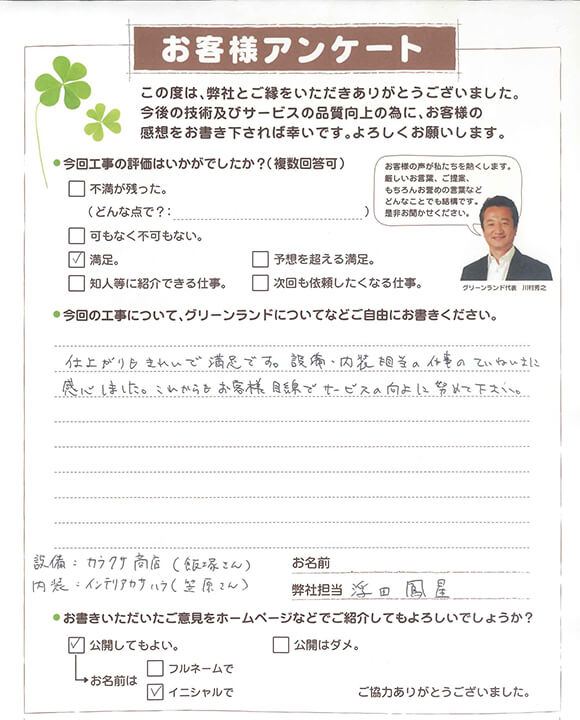 お客様アンケート
この度は、弊社とご縁をいただきありがとうございました。
今後の技術及びサービスの品質向上の為に、お客様の
感想をお書き下されば幸いです。よろしくお願いします。
今回工事の評価はいかがでしたか?(複数回答可)
不満が残った。
(どんな点で?: )
可もなく不可もない。
満足。
予想を超える満足。
知人等に紹介できる仕事。
次回も依頼したくなる仕事。
お客様の声が私たちを熱くします。
厳しいお言葉、ご提案、
もちろんお誉めの言葉など
どんなことでも結構です。
是非お聞かせください。
グリーンランド代表 川村秀之
今回の工事について、グリーンランドについてなどご自由にお書きください。
仕上がりもきれいで満足です。設備・内装担当の仕事のていねいさに
感心しました。これからもお客様目線でサービスの向上に努めて下さい。
設備:カラクサ商店(飯塚さん)
内装:インテリアカサハラ(笠原さん)
お名前
弊社担当 浮田 鳳星
お書きいただいたご意見をホームページなどでご紹介してもよろしいでしょうか?
公開してもよい。
公開はダメ。
お名前は
フルネームで
イニシャルで
ご協力ありがとうございました。